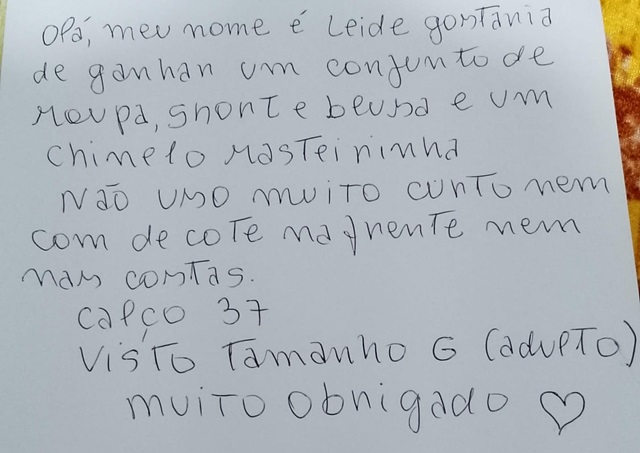 Olá, meu nome é Leide gostaria
de ganhar um conjunto de
roupa, short e blusa e um
chinelo rasteirinha
Não uso muito curto nem
com decote na frente nem
nas costas.
calço 37
visto Tamanho G (adulto)
muito obrigado ♡